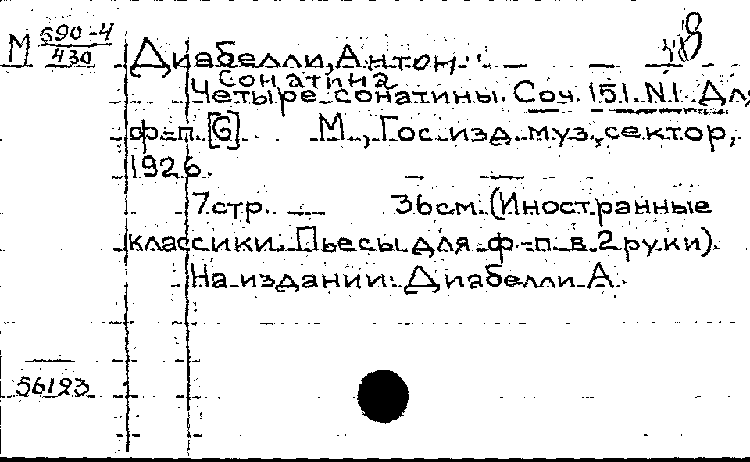 М 590-4
430
Диабелли, Антон.
Сонатина
Четыре сонатины. Соч. 151. N.1. Для
ф-п. [G] М., Гос. изд. муз. сектор,
1926.
7 стр. — 36 см. (Иностранные
классики. Пьесы для ф-п в 2 руки).
На издании: Диабелли А.
56193